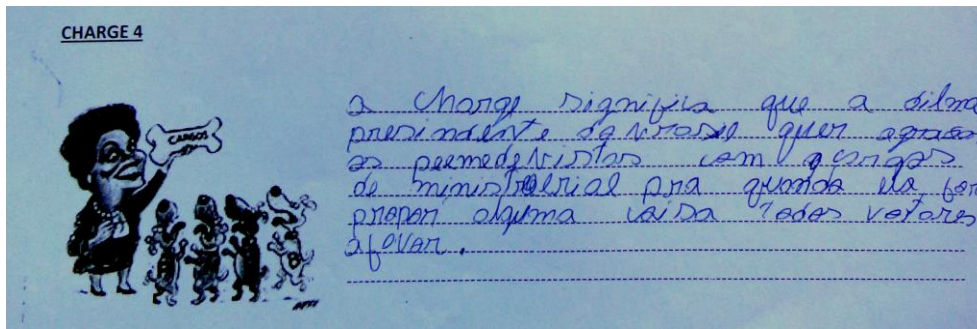 CHARGE 4
CARGOS
a charge significa que a dilma
presimdente do brasil quer agrada
os peemedebistas com cargos
de ministralrial pra quando ela for
propor alguma coisa todos votores
afovar.